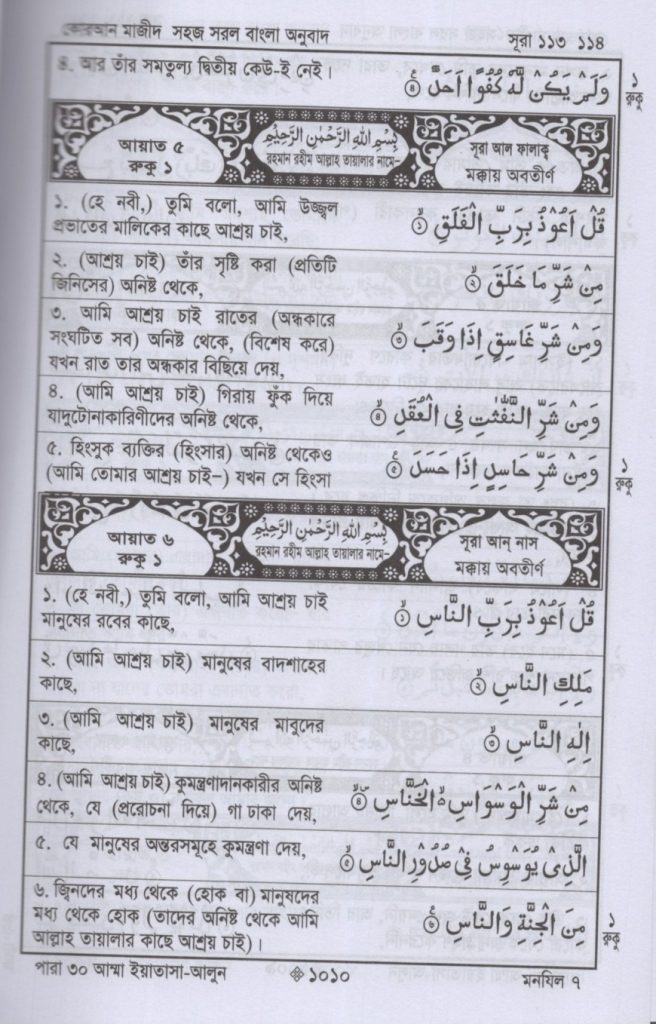 কোরআন মাজীদ সহজ সরল বাংলা অনুবাদ
সূরা ১১৩ ১১৪
৪. আর তাঁর সমতুল্য দ্বিতীয় কেউ-ই নেই।
وَلَمْ يَكُنْ لَّهٗ كُفُوًا اَحَدٌ ﴿۴﴾
১
রুকু
আয়াত ৫
রুকু ১
بِسْمِ اللهِ الرَّحْمٰنِ الرَّحِيْمِ
রহমান রহীম আল্লাহ তায়ালার নামে-
সূরা আল ফালাক্ব
মক্কায় অবতীর্ণ
১. (হে নবী,) তুমি বলো, আমি উজ্জ্বল
প্রভাতের মালিকের কাছে আশ্রয় চাই,
قُلْ اَعُوْذُ بِرَبِّ الْفَلَقِ ﴿۱﴾
২. (আশ্রয় চাই) তাঁর সৃষ্টি করা (প্রতিটি
জিনিসের) অনিষ্ট থেকে,
مِنْ شَرِّ مَا خَلَقَ ﴿۲﴾
৩. আমি আশ্রয় চাই রাতের (অন্ধকারে
সংঘটিত সব) অনিষ্ট থেকে, (বিশেষ করে)
যখন রাত তার অন্ধকার বিছিয়ে দেয়,
وَمِنْ شَرِّ غَاسِقٍ اِذَا وَقَبَ ﴿۳﴾
৪. (আমি আশ্রয় চাই) গিরায় ফুঁক দিয়ে
যাদুটোনাকারিণীদের অনিষ্ট থেকে,
وَمِنْ شَرِّ النَّفّٰثٰتِ فِي الْعُقَدِ ﴿۴﴾
৫. হিংসুক ব্যক্তির (হিংসার) অনিষ্ট থেকেও
(আমি তোমার আশ্রয় চাই-) যখন সে হিংসা
وَمِنْ شَرِّ حَاسِدٍ اِذَا حَسَدَ ﴿۵﴾
১
রুকু
আয়াত ৬
রুকু ১
بِسْمِ اللهِ الرَّحْمٰنِ الرَّحِيْمِ
রহমান রহীম আল্লাহ তায়ালার নামে-
সূরা আন্ নাস
মক্কায় অবতীর্ণ
১. (হে নবী,) তুমি বলো, আমি আশ্রয় চাই
মানুষের রবের কাছে,
قُلْ اَعُوْذُ بِرَبِّ النَّاسِ ﴿۱﴾
২. (আমি আশ্রয় চাই) মানুষের বাদশাহের
কাছে,
مَلِكِ النَّاسِ ﴿۲﴾
৩. (আমি আশ্রয় চাই) মানুষের মাবুদের
কাছে,
اِلٰهِ النَّاسِ ﴿۳﴾
৪. (আমি আশ্রয় চাই) কুমন্ত্রণাদানকারীর অনিষ্ট
থেকে, যে (প্ররোচনা দিয়ে) গা ঢাকা দেয়,
مِنْ شَرِّ الْوَسْوَاسِ الْخَنَّاسِ ﴿۴﴾
৫. যে মানুষের অন্তরসমূহে কুমন্ত্রণা দেয়,
الَّذِيْ يُوَسْوِسُ فِيْ صُدُوْرِ النَّاسِ ﴿۵﴾
৬. জ্বিনদের মধ্য থেকে (হোক বা) মানুষদের
মধ্য থেকে হোক (তাদের অনিষ্ট থেকে আমি
আল্লাহ তায়ালার কাছে আশ্রয় চাই)।
مِنَ الْجِنَّةِ وَالنَّاسِ ﴿۶﴾
১
রুকু
পারা ৩০ আম্মা ইয়াতাসা-আলুন
১০১০
মনযিল ৭